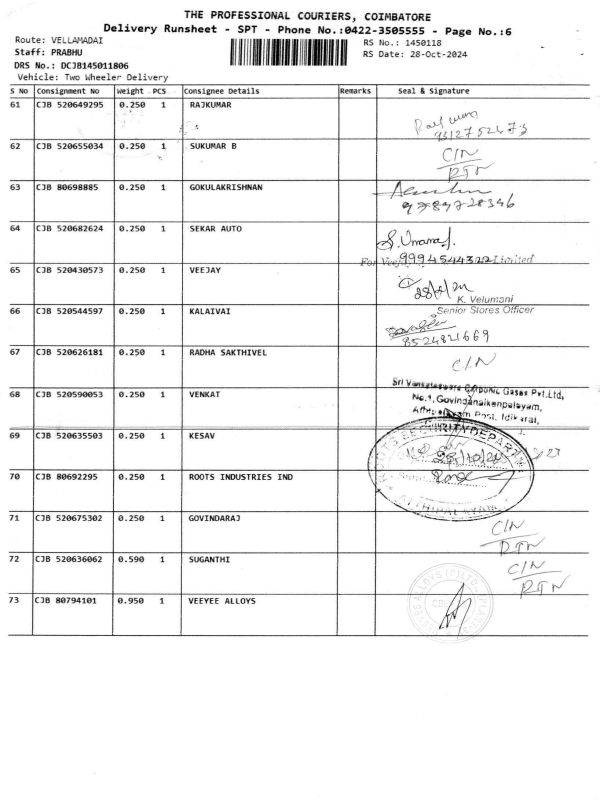 THE PROFESSIONAL COURIERS, COIMBATORE
Delivery Runsheet - SPT - Phone No.:0422-3505555 - Page No.:6
Route: VELLAMADAI
RS No.: 1450118
Staff: PRABHU
RS Date: 28-Oct-2024
DRS No.: DCJB145011806
Vehicle: Two Wheeler Delivery
S No Consignment No Weight PCS Consignee Details Remarks Seal & Signature
61 CJB 520649295 0.250 1 RAJKUMAR
9312752673
62 CJB 520655034 0.250 1 SUKUMAR B C/N
RTN
63 CJB 80698885 0.250 1 GOKULAKRISHNAN
9789728346
64 CJB 520682624 0.250 1 SEKAR AUTO
9994544322 Limited
65 CJB 520430573 0.250 1 VEEJAY
K. Velumani
66 CJB 520544597 0.250 1 KALAIVAI Senior Stores Officer
8524821669
67 CJB 520626181 0.250 1 RADHA SAKTHIVEL C/N
Sri Venkateswara Carbonic Gases Pvt.Ltd,
68 CJB 520590053 0.250 1 VENKAT No.1, Govindanaikenpalayam,
Post, Idikarai,
69 CJB 520635503 0.250 1 KESAV
ROOTS SECURITY DEPARTMENT
28/10/24
70 CJB 80692295 0.250 1 ROOTS INDUSTRIES IND
71 CJB 520675302 0.250 1 GOVINDARAJ C/N
RTN
72 CJB 520636062 0.590 1 SUGANTHI C/N
RTN
73 CJB 80794101 0.950 1 VEEYEE ALLOYS